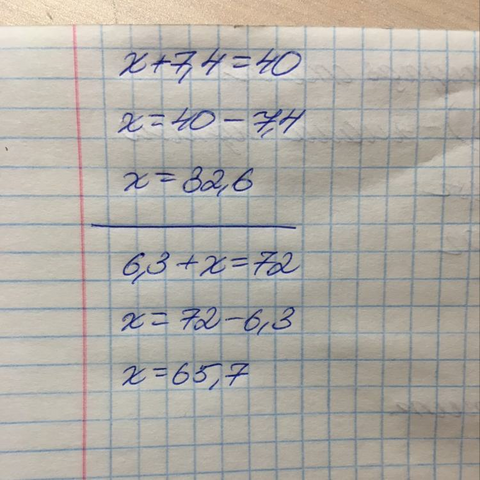 x+7,4=40
x=40-7,4
x=32,6
6,3+x=72
x=72-6,3
x=65,7